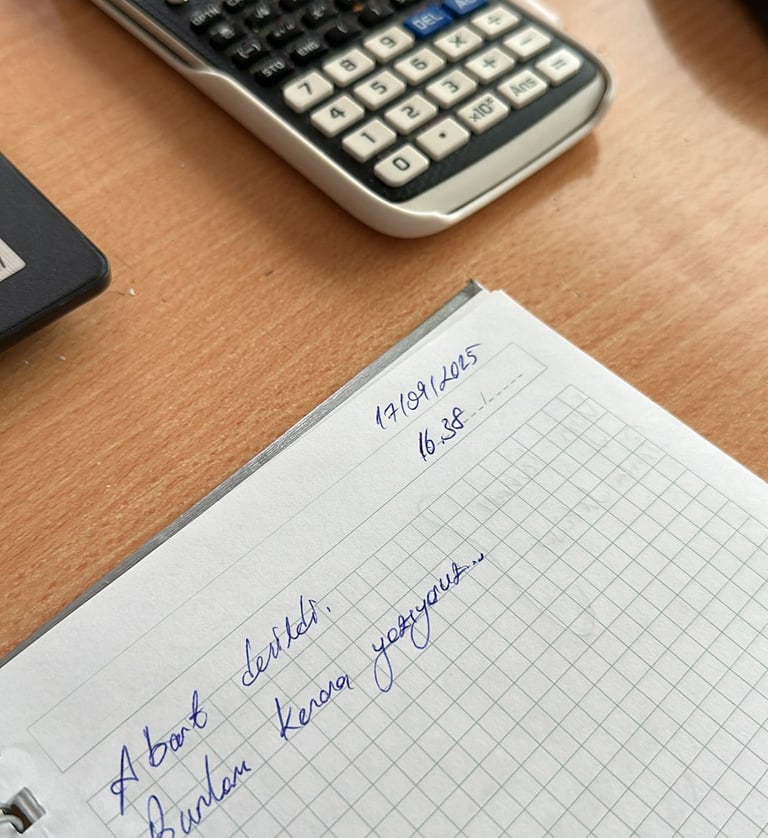 OPTN
(-)
STO ENG
DEL AC
7 8 9
4 5 6 × ÷
1 2 3 + −
0 . ×10ˣ Ans =
17/09/2025
16.38
Abart denildi.
Bunları kenara yazıyoruz...